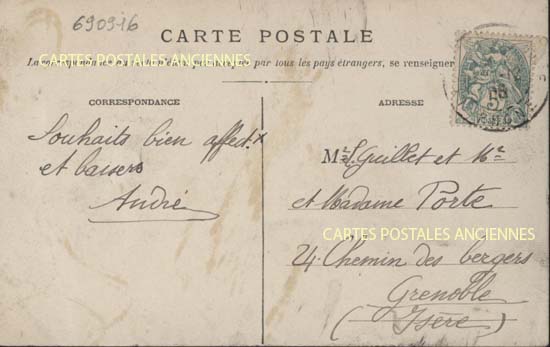 690916
CARTE POSTALE
CARTES POSTALES ANCIENNES
La correspondance au recto n'est pas acceptée par tous les pays étrangers, se renseigner
CORRESPONDANCE
Souhaits bien affect.x
et baisers
André
ADRESSE
Mlle L. Guillet et Mr
et Madame Porte
CARTES POSTALES ANCIENNES
24. Chemin des bergers
Grenoble
(Isère)